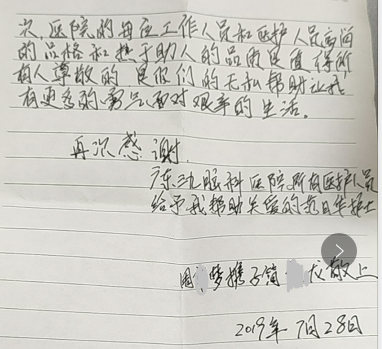 次，医院的每位工作人员和医护人员高尚
的品格和携手助人的品质是值得所
有人尊敬的 是你们的无私帮助让我
有更多的勇气面对艰辛的生活。
再次感谢
广东三九脑科医院所有医护人员
给予我帮助关爱的 护士
周 梦携子简 龙敬上
2019年7月28日